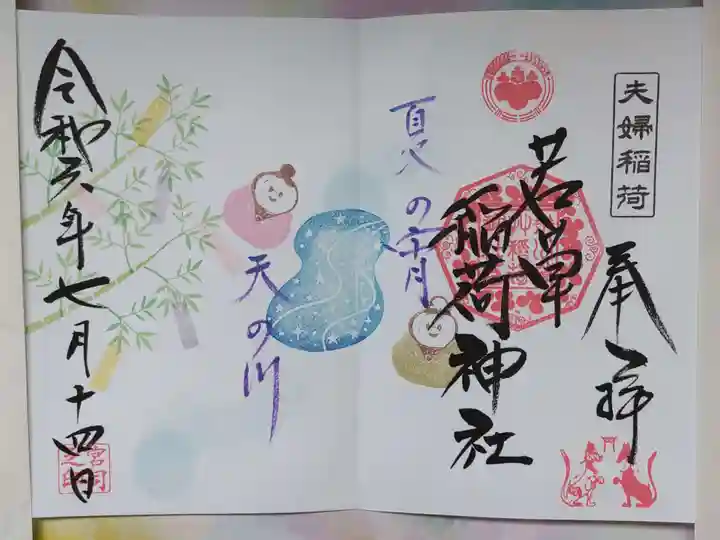 夫婦稲荷
奉拝
若草
稲荷神社
夏の宵
天の川
令和六年七月十四日
宮司
之印